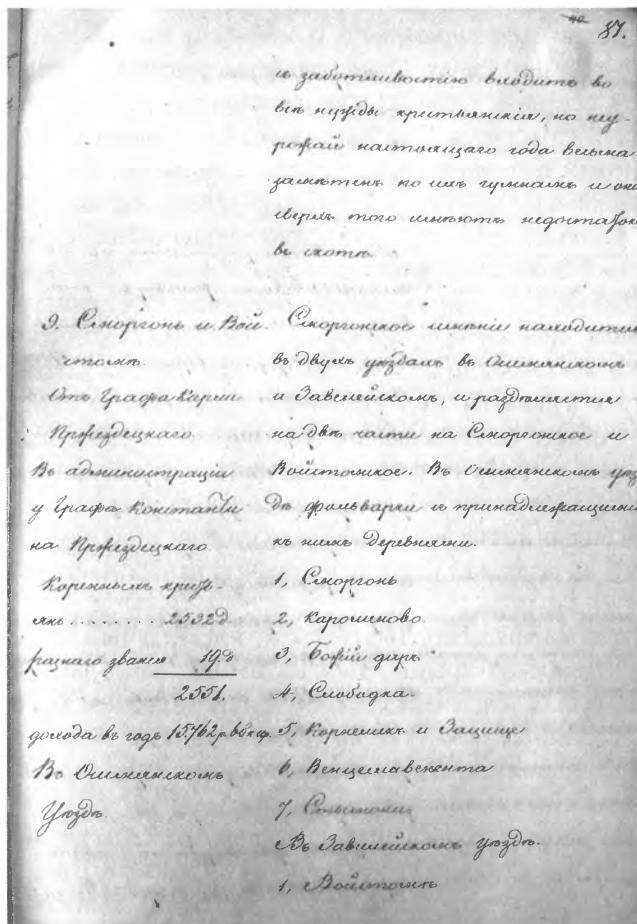 40 87.
съ заботливостію входитъ во
всѣ нужды крестьянскія, но неу-
рожай настоящаго года весьма
замѣтенъ по ихъ гумнамъ и они
сверхъ того имѣютъ недостатокъ
въ скотѣ.
9. Сморгонь и Вой
стомъ.
Отъ Графа Карла
Пржездецкаго
Въ администраціи
у Графа Константи
на Пржездецкаго
Коренныхъ кресть-
янъ ........ 2532 д.
разнаго званія 19. д
2551.
дохода въ годъ 15.762 р.
Въ Ошмянскомъ
Уѣздѣ.
Сморгонское имѣніе находится
въ двухъ уѣздахъ въ Ошмянскомъ
и Завилейскомъ, и раздѣляется
на двѣ части на Сморгонское и
Войстомское. Въ Ошмянскомъ уѣз
дѣ фольварки съ принадлежащими
къ нимъ деревнями.
1, Сморгонь
2, Каролиново
3, Божій даръ
4, Слободка.
5, и
6,
7,
Въ Завилейскомъ уѣздѣ.
1, Войстомъ